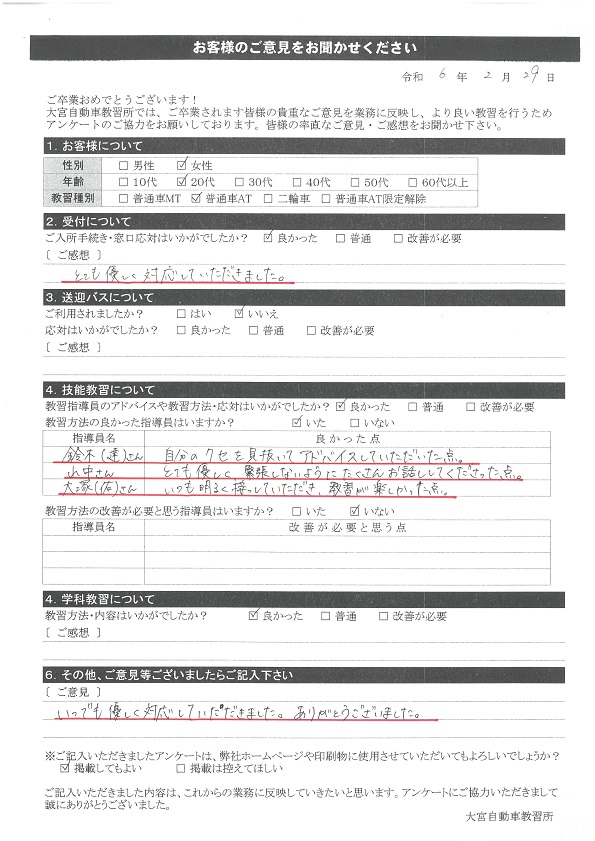 お客様のご意見をお聞かせください
令和 6 年 2 月 29 日
ご卒業おめでとうございます!
大宮自動車教習所では、ご卒業されます皆様の貴重なご意見を業務に反映し、より良い教習を行うため
アンケートのご協力をお願いしております。皆様の率直なご意見・ご感想をお聞かせ下さい。
1. お客様について
性別 □ 男性 ☑ 女性
年齢 □ 10代 ☑ 20代 □ 30代 □ 40代 □ 50代 □ 60代以上
教習種別 □ 普通車MT ☑ 普通車AT □ 二輪車 □ 普通車AT限定解除
2. 受付について
ご入所手続き・窓口応対はいかがでしたか? ☑ 良かった □ 普通 □ 改善が必要
[ ご感想 ]
とても優しく対応していただきました。
3. 送迎バスについて
ご利用されましたか? □ はい ☑ いいえ
応対はいかがでしたか? □ 良かった □ 普通 □ 改善が必要
[ ご感想 ]
4. 技能教習について
教習指導員のアドバイスや教習方法・応対はいかがでしたか? ☑ 良かった □ 普通 □ 改善が必要
教習方法の良かった指導員はいますか? ☑ いた □ いない
指導員名 良かった点
鈴木(達)さん 自分のクセを見抜いてアドバイスしていただいた点。
山中さん とても優しく、緊張しないようにたくさんお話ししてくださった点。
大塚(佑)さん いつも明るく接していただき、教習が楽しかった点。
教習方法の改善が必要と思う指導員はいますか? □ いた ☑ いない
指導員名 改善が必要と思う点
4. 学科教習について
教習方法・内容はいかがでしたか? ☑ 良かった □ 普通 □ 改善が必要
[ ご感想 ]
6. その他、ご意見等ございましたらご記入下さい
[ ご意見 ]
いつでも優しく対応していただきました。ありがとうございました。
※ご記入いただきましたアンケートは、弊社ホームページや印刷物に使用させていただいてもよろしいでしょうか?
☑ 掲載してもよい □ 掲載は控えてほしい
ご記入いただきました内容は、これからの業務に反映していきたいと思います。アンケートにご協力いただきまして
誠にありがとうございました。
大宮自動車教習所